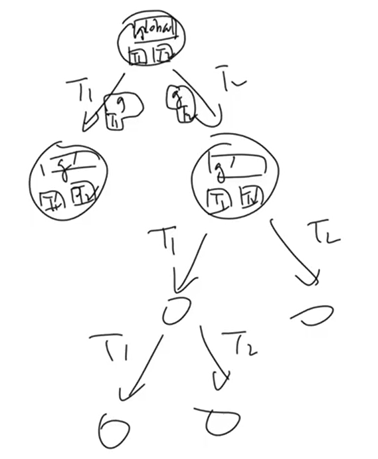 global
T1 T2
T1 T2
g g
T1 T2
g' g'
T1 T2 T1 T2
T1 T2
T1 T2